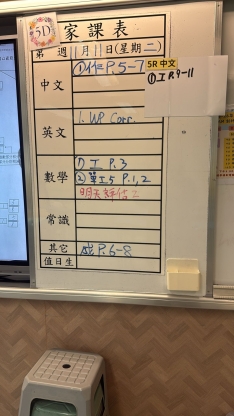 5D
家課表
第 週 11月11日(星期二)
中文 ①作P.5-7
5R 中文
①工P.9-11
英文 1. WP Corr.
數學 ①工P.3
②單工5 P.1,2
明天評估
常識
其它 成P.6-8
值日生